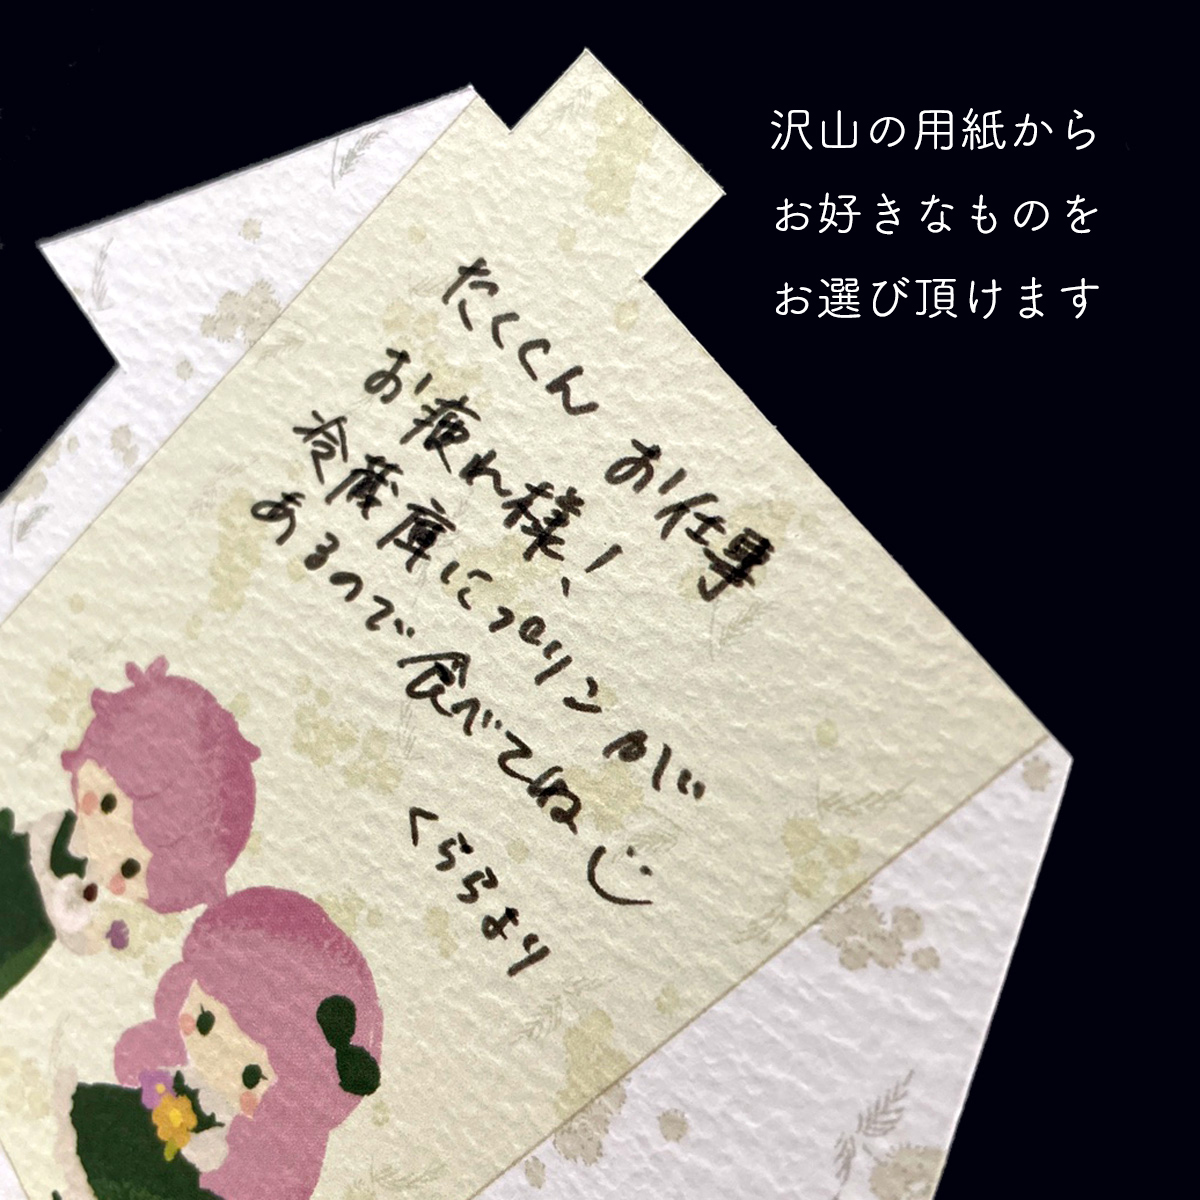 沢山の用紙から
お好きなものを
お選び頂けます
たくくん お仕事
お疲れ様!
冷蔵庫にプリンが
あるので食べてね
くららより